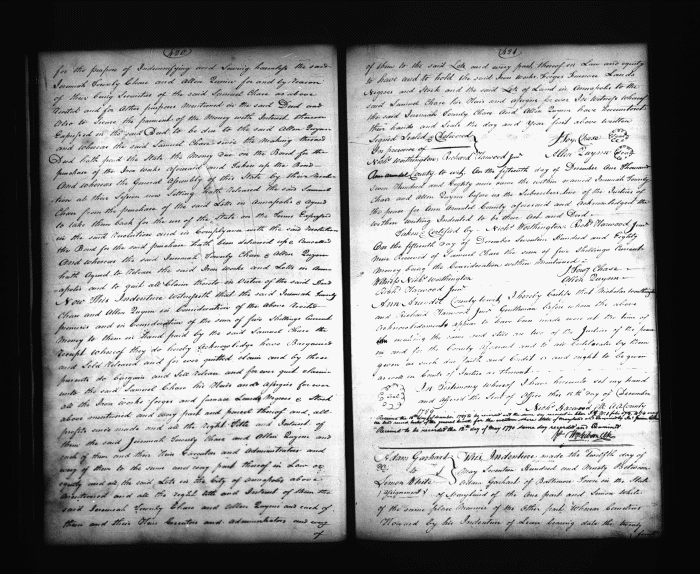 430
for the purpose of Indemnifying and Saving harmless the said
Jeremiah Townly Chase and Allen Quynn for and by reason
of their being Securities of the said Samuel Chase as above
recited and for other purposes Mentioned in the said Deed and
Also to Secure the payment of the Money with Interest thereon
Expressed in the said Deed to be due to the said Allen Quynn
and whereas the said Samuel Chase since the making thereof
hath paid the State the Money due on the Bond for the
purchase of the Iron Works aforesaid and taken up the Bond
And whereas the General Assembly of this State by their Resolu
tion at their Session
Chase from the purchase of the said Lots in Annapolis & agreed
to take them back for the use of the State on the terms Expressed
in the said Resolution and in Compliance with the said Resolution
the Bond for the said purchase hath been delivered up & Cancelled
And whereas the said Jeremiah Townly Chase & Allen Quynn
hath agreed to Release the said Iron Works and Lots in Anna
apolis and to quit all Claim thereto in Virtue of the said Deed
Now This Indenture Witnesseth that the said Jeremiah Townly
Chase and Allen Quynn in Consideration of the above Recited
premises and in Consideration of the sum of five Shillings Current
Money to them in hand paid by the said Samuel Chase the
receipt whereof they do hereby Acknowledge have Bargained
and Sold Released and for ever quitted claim and by these
presents do Bargain and Sell Release and for ever quit claim
unto the said Samuel Chase his Heirs and Assigns for ever
all the Iron Works forges and furnace Lands Negroes & Stock
above mentioned and every part and parcel thereof and all
profits since made and all the right Title and Interest of
them the said Jeremiah Townly Chase and Allen Quynn and
each of them and their Heirs Executors and Administrators and
any of them to the same and every part thereof in Law or
equity and all the said Lots in the City of Annapolis above
mentioned and all the right title and Interest of them the
said Jeremiah Townly Chase and Allen Quynn and each of
them and their Heirs Executors and Administrators and any
of
431
of them to the said Lots and every part thereof in Law and equity
to have and to hold the said Iron Works Forges Furnace Lands
Negroes and Stock and the said Lots of Land in Annapolis to the
said Samuel Chase his Heirs and Assigns forever In Witness Whereof
the said Jeremiah Townly Chase And Allen Quynn have hereunto set
their hands and Seals the day and Year first above written
Signed Sealed & Delivered
In presence of
Jery Chase Seal
Allen Quynn Seal
Nichs Worthington Richard Harwood Junr
Ann Arundel County to wit, On the fifteenth day of December One thousand
Seven Hundred and Eighty nine came the within named Jeremiah Townly
Chase and Allen Quynn before us the Subscribers two of the Justices of
the peace for Ann Arundel County aforesaid and Acknowledged the
within writing Indented to be their Act and Deed
Taken & Certified by Nichs Worthington Richd Harwood Junr
On the fifteenth day of December Seventeen Hundred and Eighty
nine Received of Samuel Chase the sum of five Shillings Current
Money being the Consideration within Mentioned
Witness Nichs Worthington
Richd Harwood Junr
Jery Chase
Allen Quynn
Ann Arundel County to wit, I hereby Certify that Nicholas Worthington
and Richard Harwood Junr Gentlemen before whom the above
acknowledgments appear to have been made were at the time of
making the same and still are two of the Justices of the peace
in and for the County aforesaid and to all Certificates by them
given as such due Faith and Credit is and ought to be given
as well in Courts of Justice as thereout
In Testimony Whereof I have hereunto set my hand
and affixed the Seal of Office this 15th day of December
1789
Nichs Harwood
Received to be recorded the 12th day of May 1790 same day recorded and Examined
Adam Gashart
to
Lemon White
Assignment
This Indenture made the Twelfth day of
May Seventeen Hundred and Ninety Between
Adam Gashart of Baltimore Town in the State
of Maryland of the One part and Lemon White
of the same place Mariner of the Other part, Whereas Cornelius
Howard by his Indenture of Lease bearing date the twenty